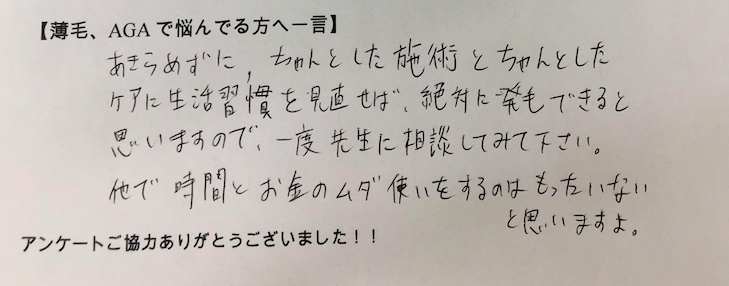 【薄毛、AGAで悩んでる方へ一言】
あきらめずに、ちゃんとした施術とちゃんとした
ケアに生活習慣を見直せば、絶対に発毛できると
思いますので、一度先生に相談してみて下さい。
他で時間とお金のムダ使いをするのはもったいない
と思いますよ。
アンケートご協力ありがとうございました！！